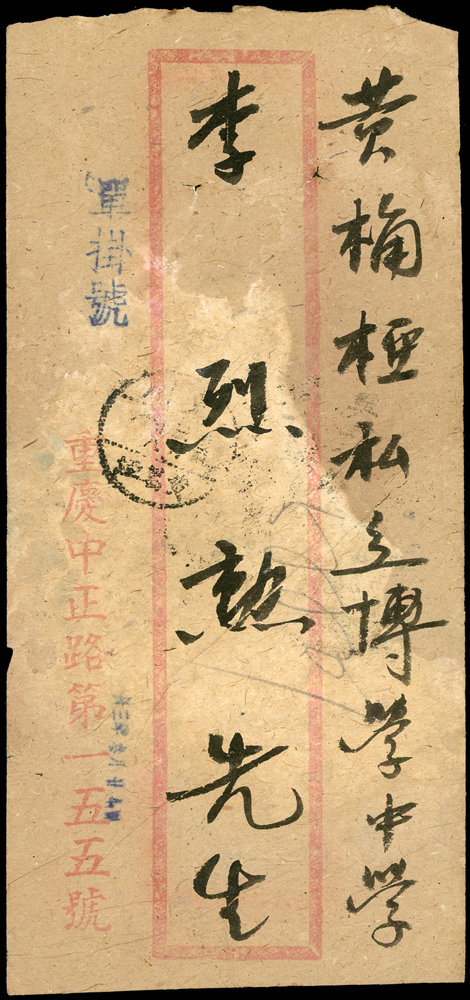 黄桷椏私立博学中学
李烈勲先生
單掛號
重慶中正路第一五五號